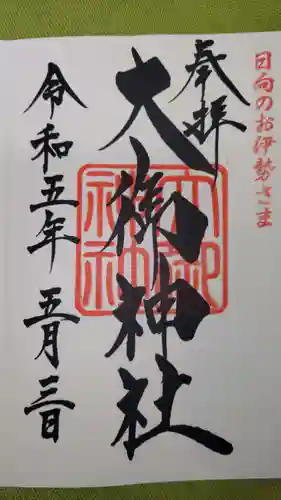 日向のお伊勢さま
奉拝
大御神社
令和五年五月三日